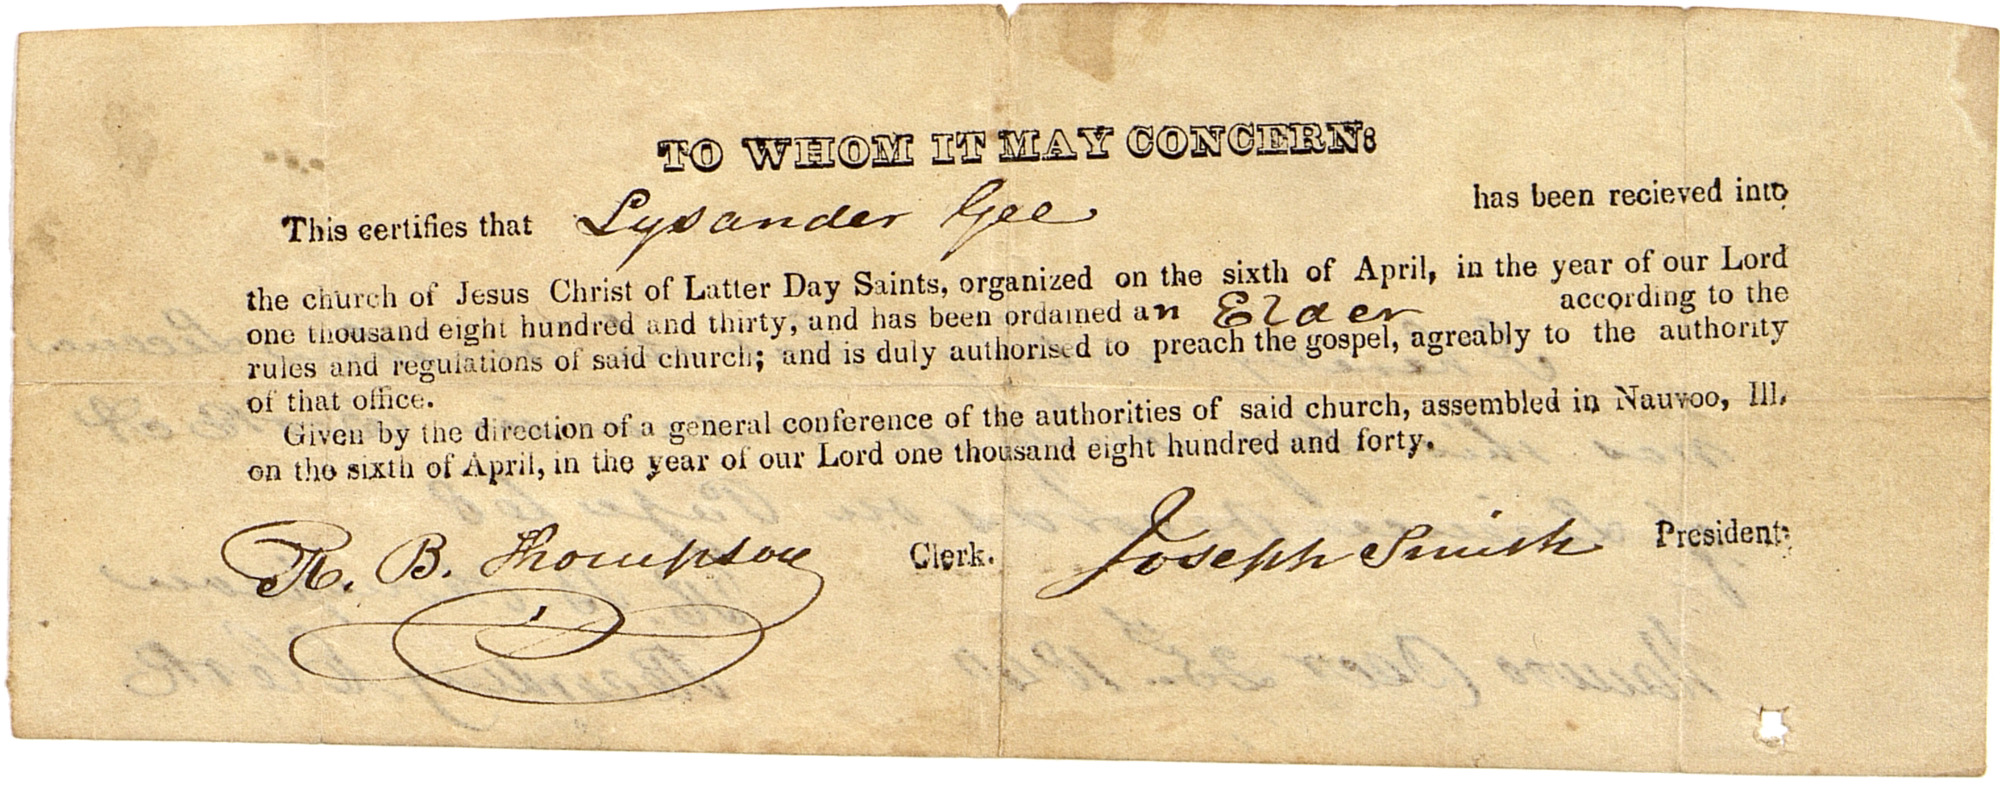 TO WHOM IT MAY CONCERN:
This certifies that Lysander Gee has been recieved into
the church of Jesus Christ of Latter Day Saints, organized on the sixth of April, in the year of our Lord
one thousand eight hundred and thirty, and has been ordained an Elder according to the
rules and regulations of said church; and is duly authorised to preach the gospel, agreably to the authority
of that office.
Given by the direction of a general conference of the authorities of said church, assembled in Nauvoo, Ill.
on the sixth of April, in the year of our Lord one thousand eight hundred and forty.
R. B. Thompson Clerk. Joseph Smith President.